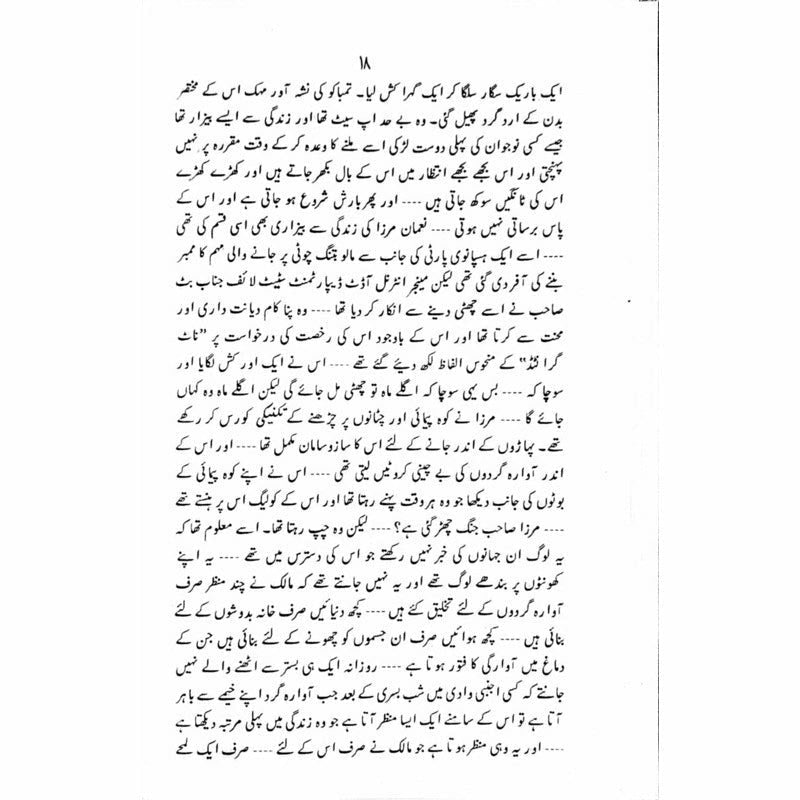 ۱۸
ایک باریک سگار سلگا کر ایک گہرا کش لیا۔ تمباکو کی نشہ آور مہک اس کے مختصر
بدن کے ارد گرد پھیل گئی۔ وہ بے حد اپ سیٹ تھا اور زندگی سے ایسے بیزار تھا
جیسے کسی نوجوان کی پہلی دوست لڑکی اسے ملنے کا وعدہ کر کے وقت مقررہ پر نہیں
پہنچتی اور اس بجھے بجھے انتظار میں اس کے بال بکھر جاتے ہیں اور کھڑے کھڑے
اس کی ٹانگیں سوکھ جاتی ہیں ---- اور پھر بارش شروع ہو جاتی ہے اور اس کے
پاس برساتی نہیں ہوتی ---- نعمان مرزا کی زندگی سے بیزاری بھی اسی قسم کی تھی
---- اسے ایک ہسپانوی پارٹی کی جانب سے مالو بٹنگ چوٹی پر جانے والی مہم کا ممبر
بننے کی آفر دی گئی تھی لیکن مینجر انٹرنل آڈٹ ڈیپارٹمنٹ سٹیٹ لائف جناب بٹ
صاحب نے اسے چھٹی دینے سے انکار کر دیا تھا ---- وہ پنا کام دیانت داری اور
محنت سے کرتا تھا اور اس کے باوجود اس کی رخصت کی درخواست پر ”ناٹ
گرانٹڈ“ کے منحوس الفاظ لکھ دیئے گئے تھے ---- اس نے ایک اور کش لگایا اور
سوچا کہ ---- بس یہی سوچا کہ اگلے ماہ تو چھٹی مل جائے گی لیکن اگلے ماہ وہ کہاں
جائے گا ---- مرزا نے کوہ پیمائی اور چٹانوں پر چڑھنے کے تکنیکی کورس کر رکھے
تھے۔ پہاڑوں کے اندر جانے کے لئے اس کا سازوسامان مکمل تھا ---- اور اس کے
اندر آوارہ گردوں کی بے چینی کروٹیں لیتی تھی ---- اس نے اپنے کوہ پیمائی کے
بوٹوں کی جانب دیکھا جو وہ ہر وقت پہنے رہتا تھا اور اس کے کولیگ اس پر ہنستے تھے
---- مرزا صاحب جنگ چھڑ گئی ہے؟ ---- لیکن وہ چپ رہتا تھا۔ اسے معلوم تھا کہ
یہ لوگ ان جہانوں کی خبر نہیں رکھتے جو اس کی دسترس میں تھے ---- یہ اپنے
کھونٹوں پر بندھے لوگ تھے اور یہ نہیں جانتے تھے کہ مالک نے چند منظر صرف
آوارہ گردوں کے لئے تخلیق کئے ہیں ---- کچھ دنیائیں صرف خانہ بدوشوں کے لئے
بنائی ہیں ---- کچھ ہوائیں صرف ان جسموں کو چھونے کے لئے بنائی ہیں جن کے
دماغ میں آوارگی کا فتور ہوتا ہے ---- روزانہ ایک ہی بستر سے اٹھنے والے نہیں
جانتے کہ کسی اجنبی وادی میں شب بسری کے بعد جب آوارہ گرد اپنے خیمے سے باہر
آتا ہے تو اس کے سامنے ایک ایسا منظر آتا ہے جو وہ زندگی میں پہلی مرتبہ دیکھتا ہے
---- اور یہ وہی منظر ہوتا ہے جو مالک نے صرف اس کے لئے ---- صرف ایک لمحے